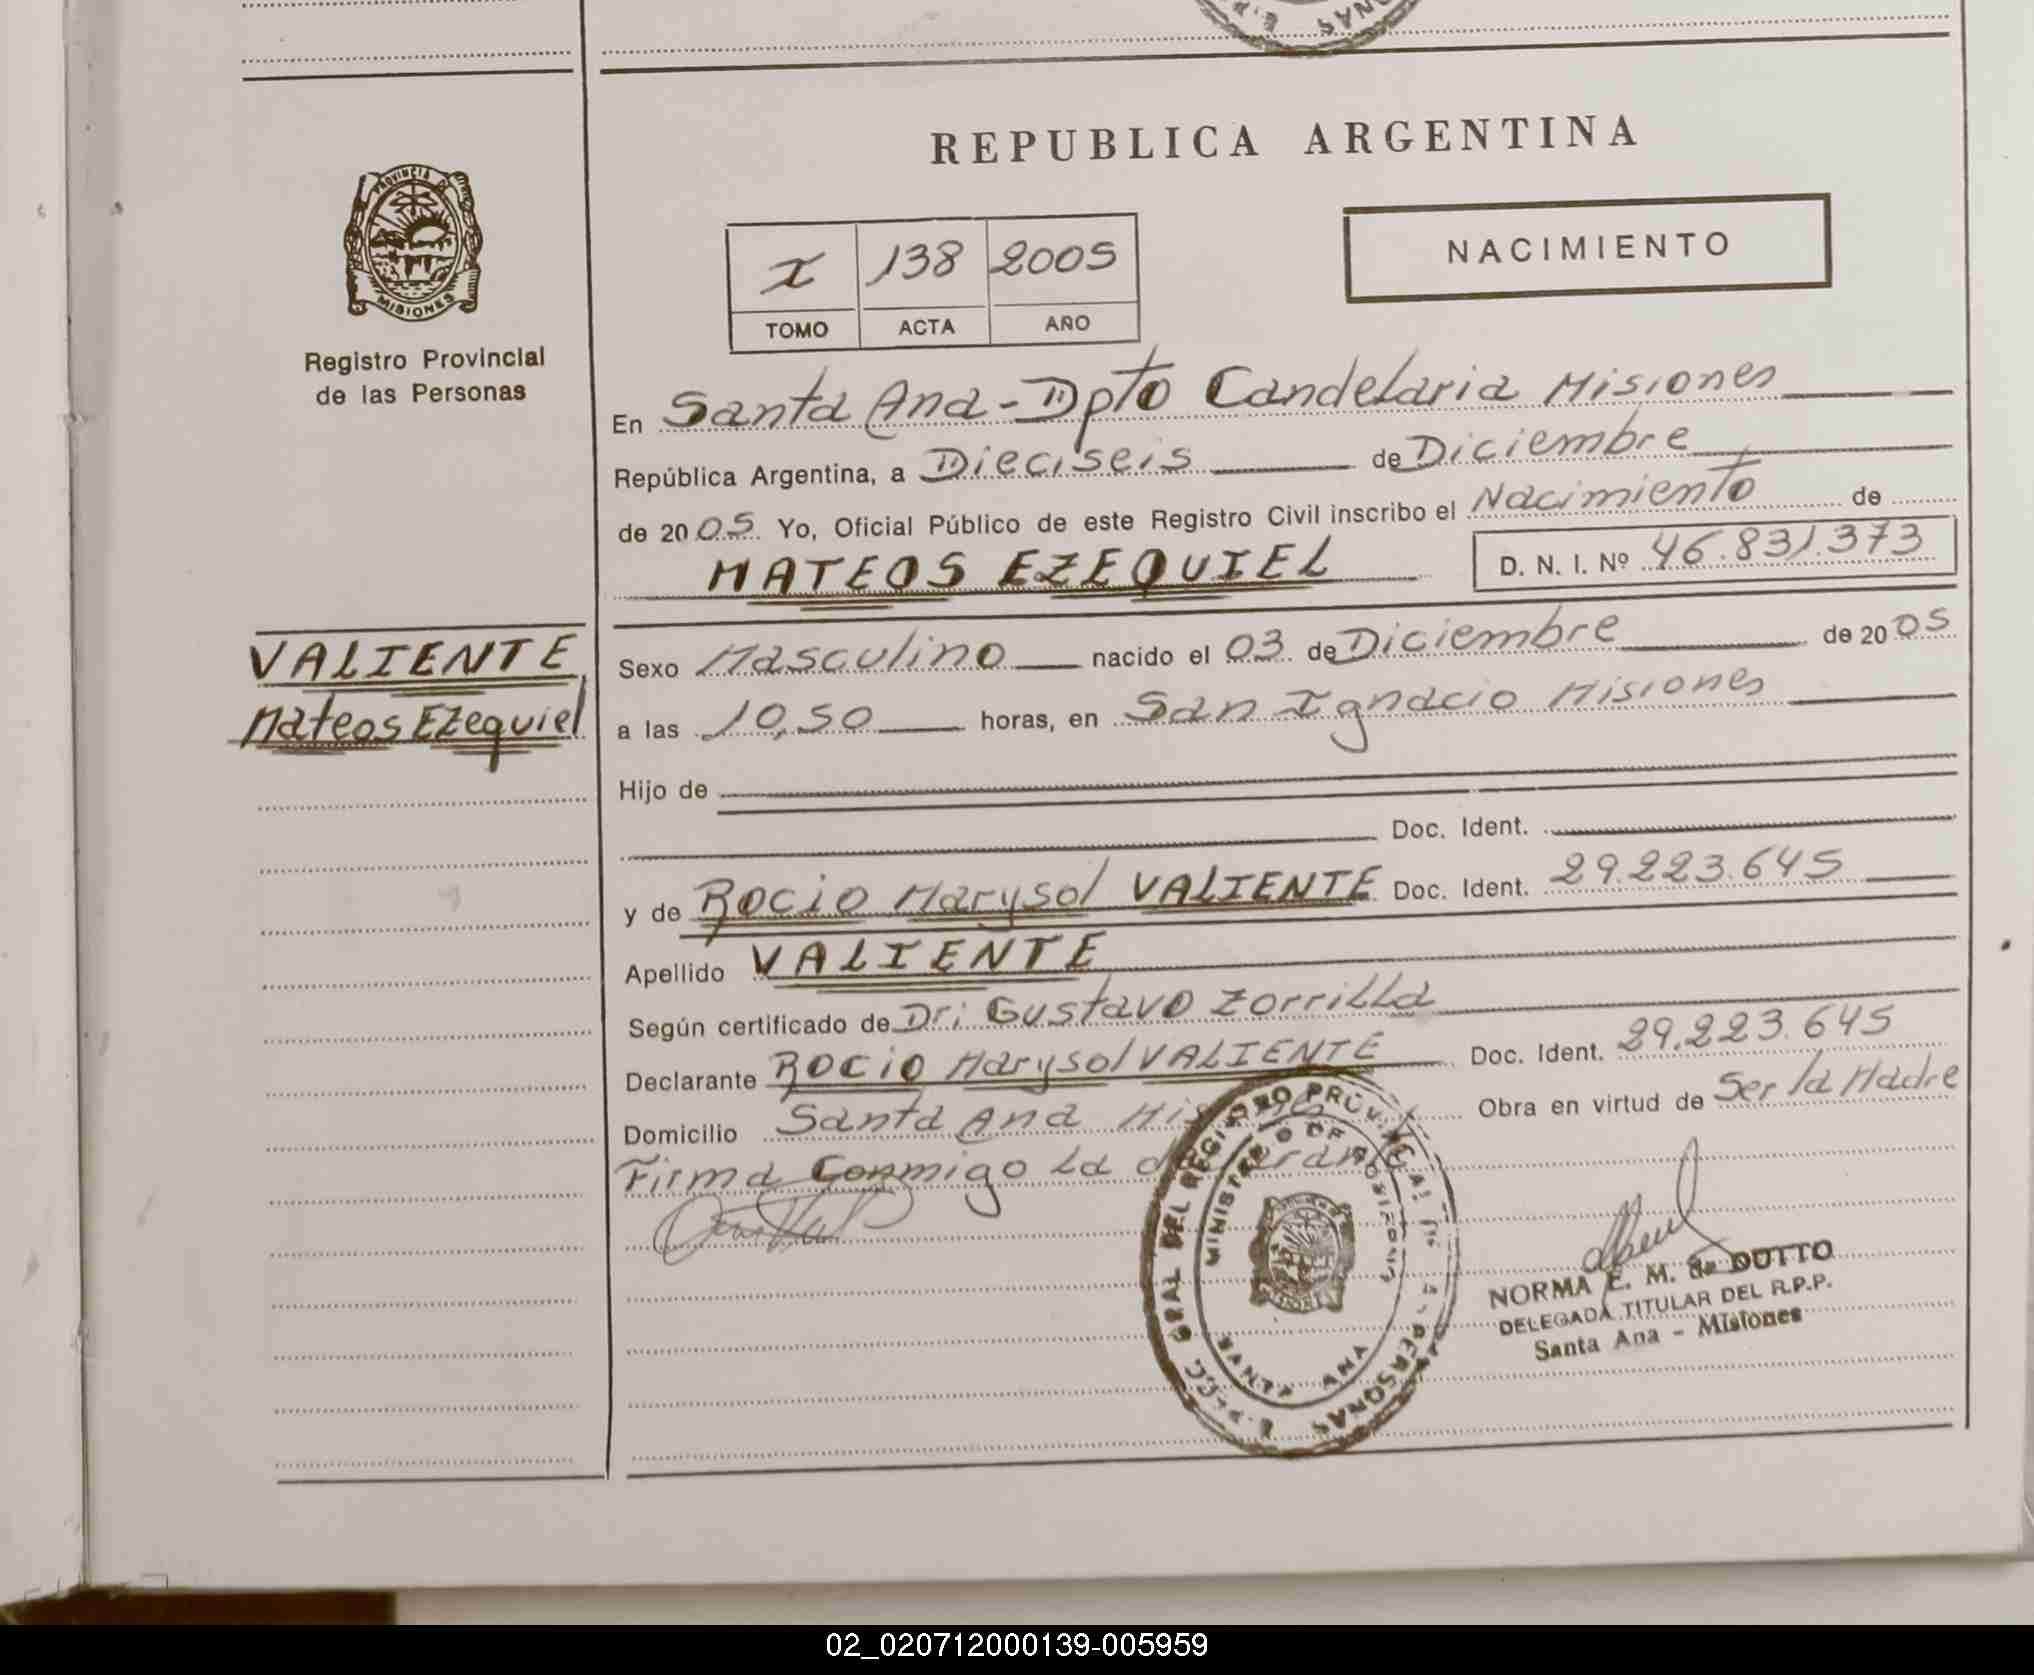 REPUBLICA ARGENTINA
PROVINCIA DE
MISIONES
Registro Provincial
de las Personas
I 138 2005
TOMO ACTA AÑO
NACIMIENTO
En Santa Ana - Dpto Candelaria Misiones
República Argentina, a Dieciseis de Diciembre
de 2005 Yo, Oficial Público de este Registro Civil inscribo el Nacimiento de
MATEOS EZEQUIEL D. N. I. Nº 46.831.373
VALIENTE
Mateos Ezequiel
Sexo Masculino nacido el 03 de Diciembre de 2005
a las 10,50 horas, en San Ignacio Misiones
Hijo de
Doc. Ident.
y de Rocio Marysol VALIENTE Doc. Ident. 29.223.645
Apellido VALIENTE
Según certificado de Dr; Gustavo Zorrilla
Declarante Rocio Marysol VALIENTE Doc. Ident. 29.223.645
Domicilio Santa Ana Obra en virtud de Ser la Madre
Firma Conmigo La
MINISTERIO DE GOBIERNO
SANTA ANA
NORMA E. M. de DUTTO
DELEGADA TITULAR DEL R.P.P.
Santa Ana - Misiones
02_020712000139-005959